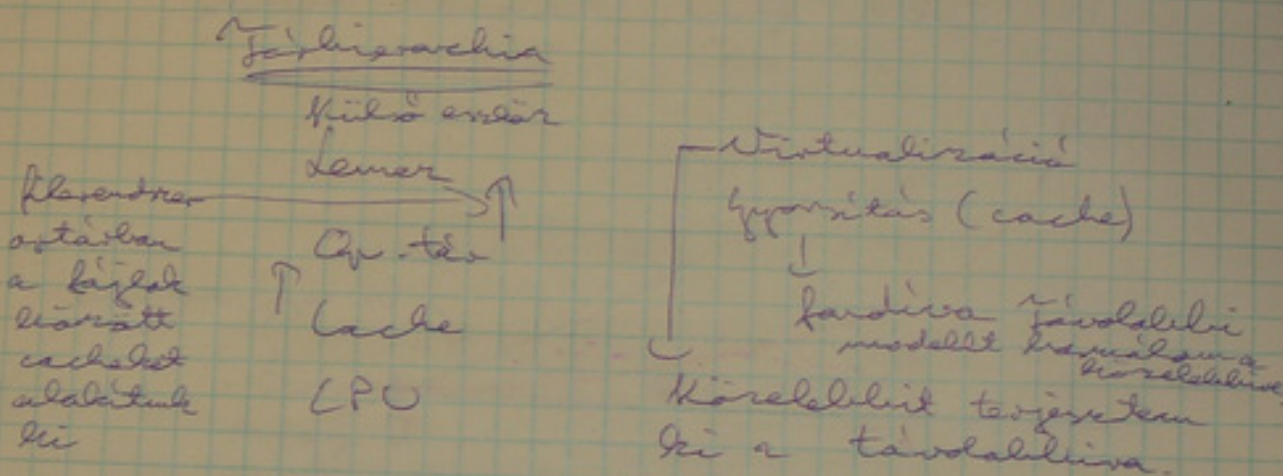 Tárhierarchia
Külső eszköz
Lemez
Op. tár
Cache
CPU
filerendszer
optárban
a fájlok
között
cacheket
alakítunk
ki
Virtualizáció
Gyorsítás (cache)
fordítva távolabbi
modellt használom a
közelebbire
Közelebbit terjesztem
ki a távolabbira.